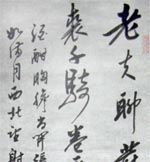 老夫聊發
裘千騎卷
酒酣胸膽尚開張
如滿月西北望射